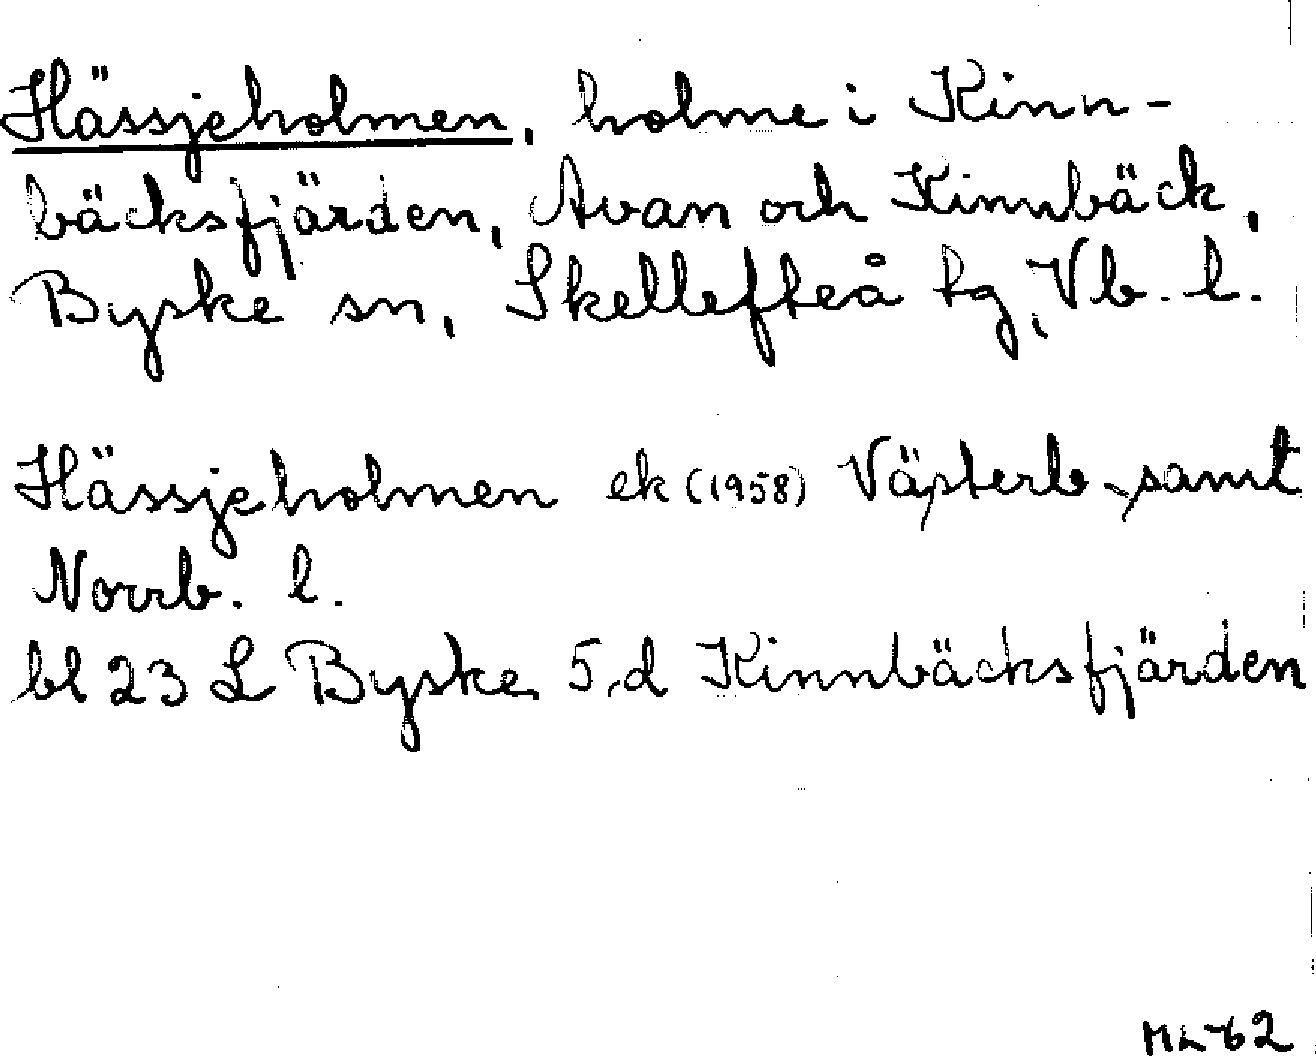 Hässjeholmen, holme i Kinn-
bäcksfjärden, Avan och Kinnbäck,
Byske sn, Skellefteå tg, Vb. l.
Hässjeholmen ek (1958) Västerb. samt
Norrb. l.
bl 23 L Byske 5,d Kinnbäcksfjärden
ML-62